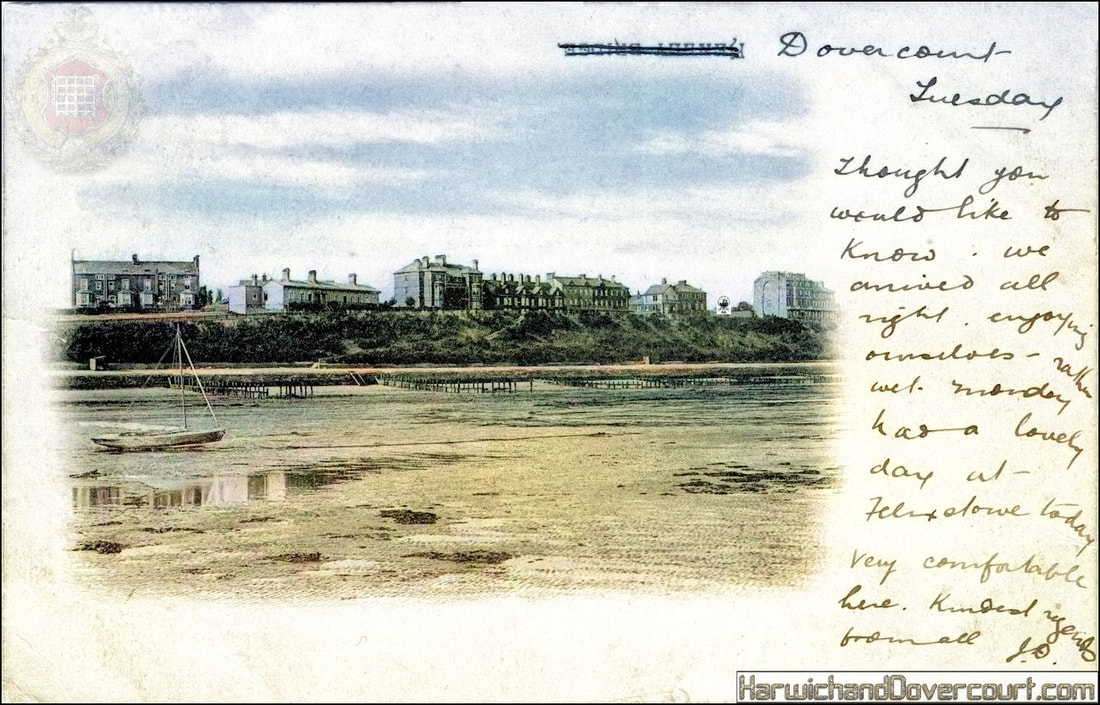 Dovercourt
Tuesday
Thought you
would like to
know. we
arrived all
right. enjoying
ourselves - rather
wet. monday
had a lovely
day at
Felixstowe today
very comfortable
here. Kindest regards
from all J.D.
HarwichandDovercourt.com